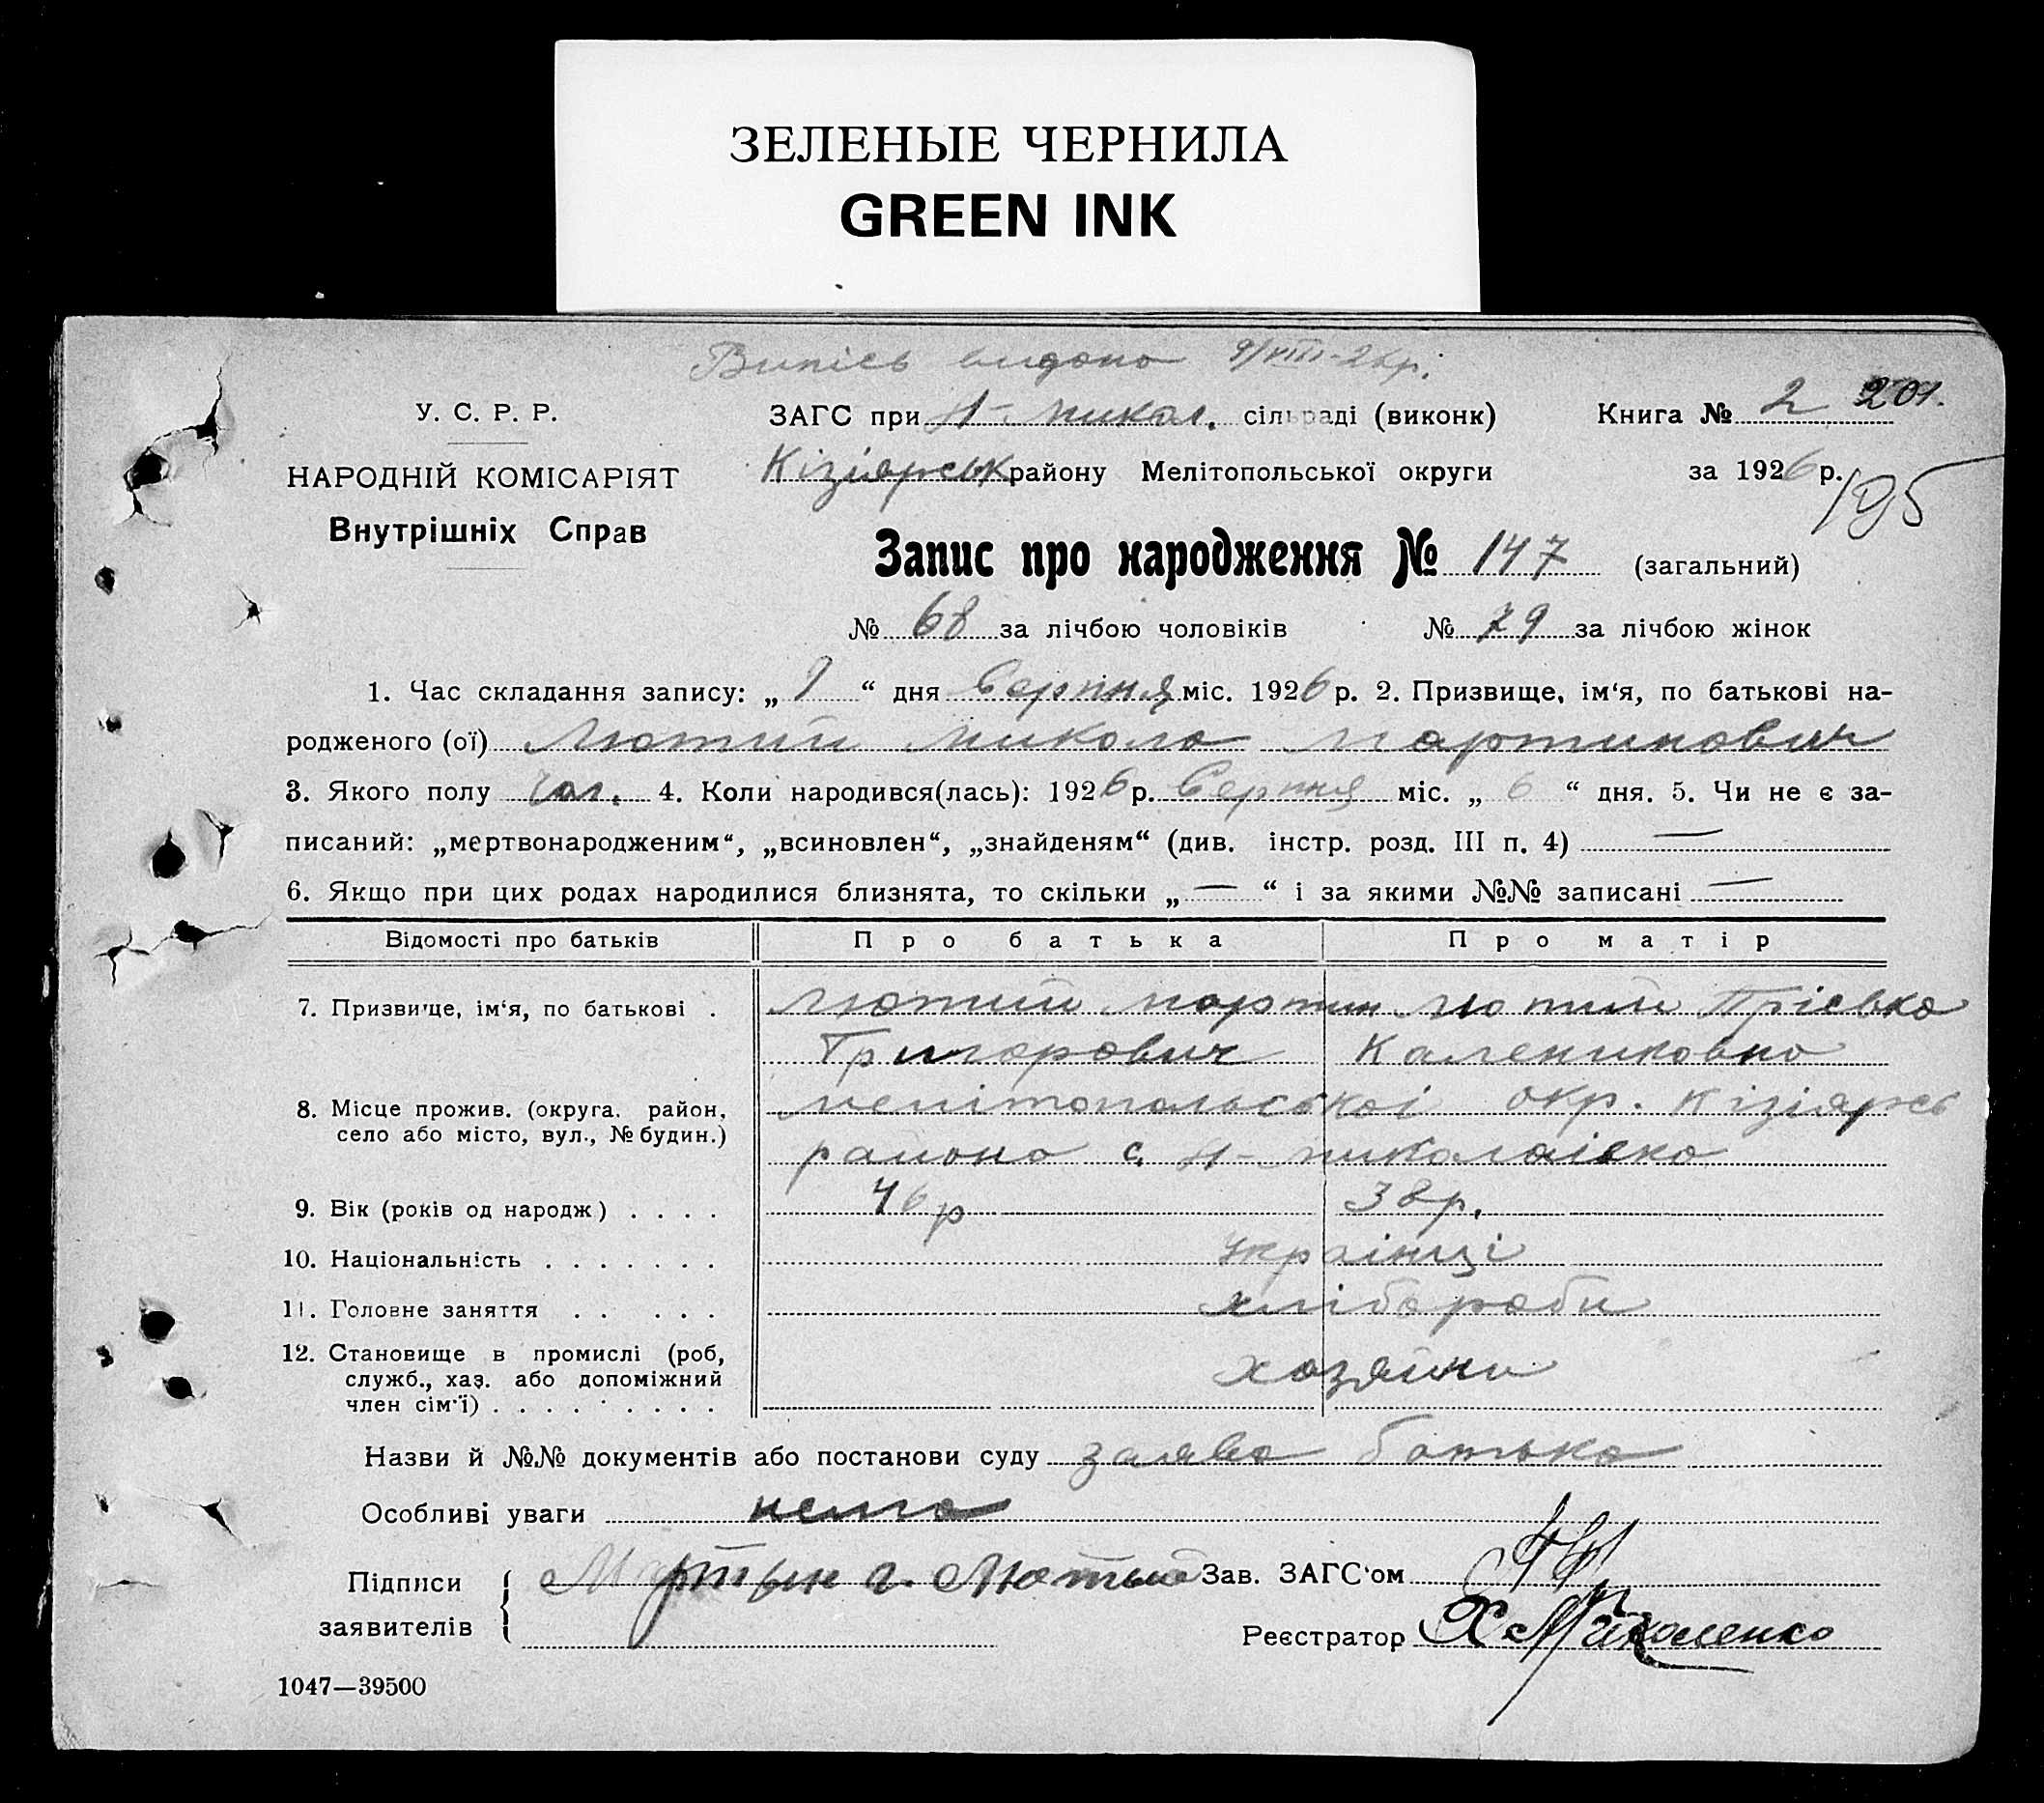 ЗЕЛЕНЫЕ ЧЕРНИЛА
GREEN INK
Випісь видана 9/VIII-26р.
У. С. Р. Р.
ЗАГС при Н-Микол. сільраді (виконк)
Книга № 2 201.
НАРОДНІЙ КОМІСАРІЯТ
Кізіярськ району Мелітопольської округи
за 1926 р.
195
Внутрішніх Справ
Запис про народження № 147 (загальний)
№ 68 за лічбою чоловіків № 79 за лічбою жінок
1. Час складання запису: „ 9 “ дня Серпня міс. 1926 р. 2. Призвище, ім‘я, по батькові на-
родженого (ої) Лютий Микола Мартинович
3. Якого полу чол. 4. Коли народився(лась): 1926 р. Серпня міс. „ 6 “ дня. 5. Чи не є за-
писаний: „мертвонародженим“, „всиновлен“, „знайденям“ (див. інстр. розд. III п. 4) —
6. Якщо при цих родах народилися близнята, то скільки „ — “ і за якими №№ записані —
Відомості про батьків Про батька Про матір
7. Призвище, ім‘я, по батькові . Лютий Мартин Лютий Пріська
Григорович Калениковна
8. Місце прожив. (округа, район, Мелітопольської окр. Кізіярсь
село або місто, вул., № будин.) района с. Н-Миколаієка
9. Вік (років од народж) . . . . 46р 38р.
10. Національність . . . . . . . Українці
11. Головне заняття . . . . . хлібороби
12. Становище в промислі (роб,
служб., хаз. або допоміжний хозяини
член сім‘ї) . . . . . . . . .
Назви й №№ документів або постанови суду заява батька
Особливі уваги нема
Підписи Мартын Г. Лютый Зав. ЗАГС‘ом
заявителів
Реєстратор Х. Миколенко
1047—39500